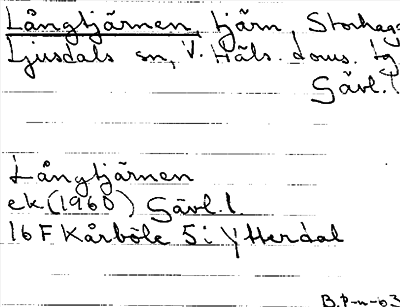 Långtjärnen, tjärn, Storhaga
Ljusdals sn, V. Häls. doms. tg
Gävl. l
Långtjärnen
ek (1960) Gävl. l.
16F Kårböle 5 i Ytterdal
B.P-n-63